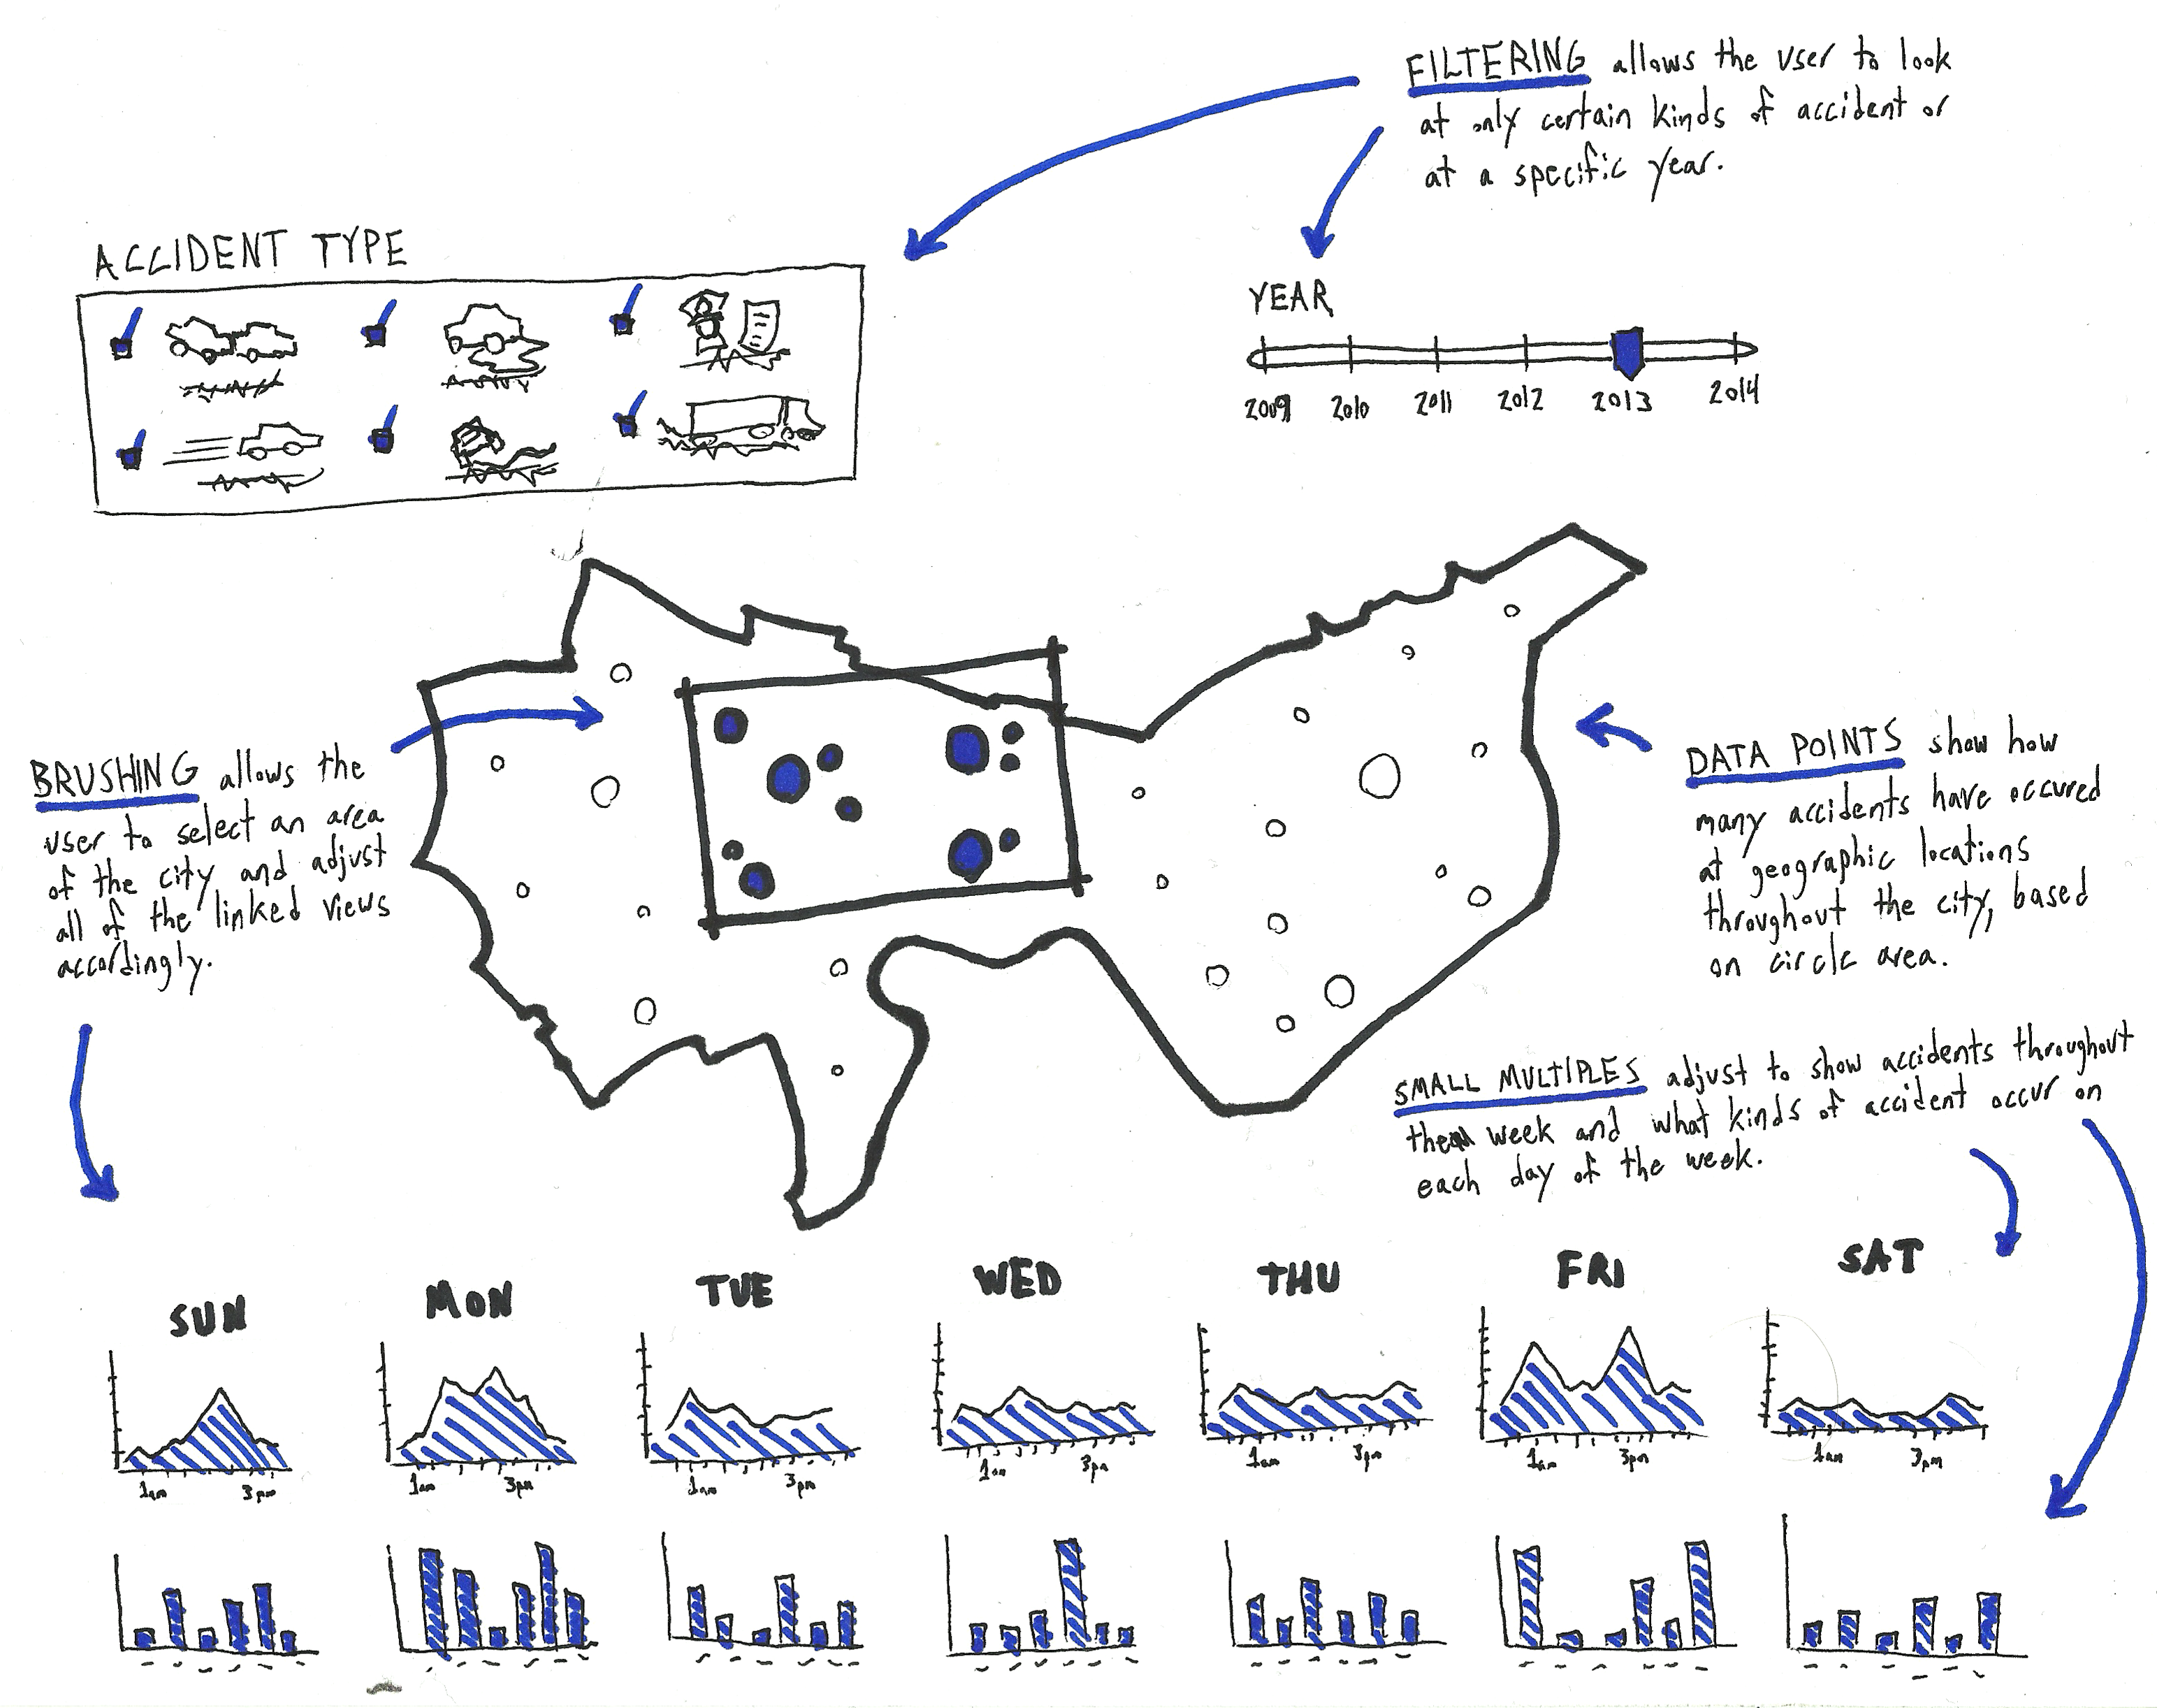 FILTERING allows the user to look
at only certain kinds of accident or
at a specific year.
ACCIDENT TYPE
YEAR
2009 2010 2011 2012 2013 2014
BRUSHING allows the
user to select an area
of the city and adjust
all of the linked views
accordingly.
DATA POINTS show how
many accidents have occured
at geographic locations
throughout the city, based
on circle area.
SMALL MULTIPLES adjust to show accidents throughout
the week and what kinds of accident occur on
each day of the week.
SUN MON TUE WED THU FRI SAT
1am 3pm 1am 3pm 1am 3pm 1am 3pm 1am 3pm 1am 3pm 1am 3pm